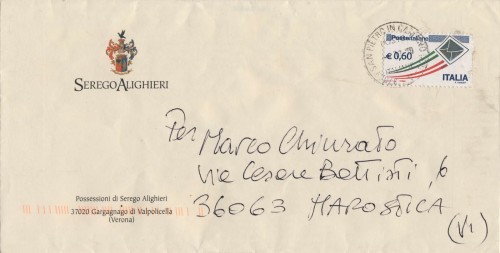 SEREGO ALIGHIERI
SAN PIETRO IN CARIANO
Posteitaliane
€ 0,60
ITALIA
Per Marco Chiurato
Via Cesare Battisti, 6
36063 MAROSTICA
(VI)
Possessioni di Serego Alighieri
37020 Gargagnago di Valpolicella
(Verona)